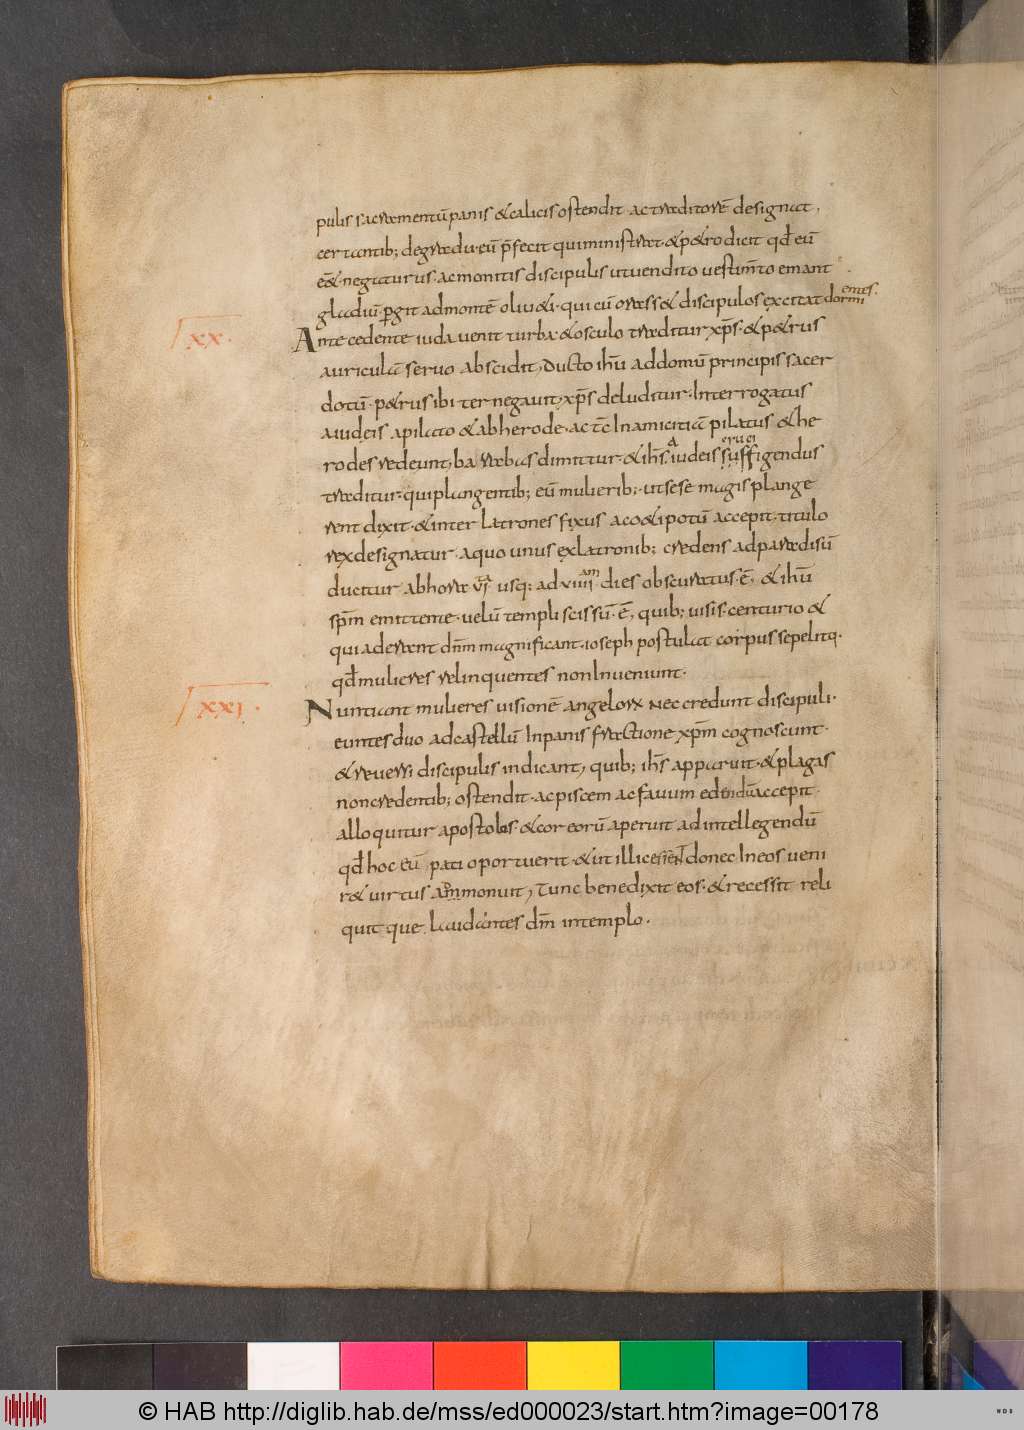 pulis sacramentū panis & calicis ostendit· ac traditorē designat,
certantib; de gradu· eū p̄fecit qui ministrat· & p&ro dicit qd̄ eū
eēt negaturus· ac monitis discipulis ut uendito uestim̄to emant
gladiū· pergit ad montē oliu&i· qui cū orass& discipulos excitat dormientes.
XX. Antecedente iuda uenit turba· & osculo traditur xp̄s· & p&rus
auriculā seruo abscidit, ducto ih̄u ad domū principis sacer
dotū· p&rus ibi ter negauit, xp̄s deluditur· Interrogatus
a iudeis a pilato & ab herode· ac tc̄ In amicitiā pilatus & he
rodes redeunt, barabas dimittur· & ih̄s a iudeis suffigendus cruci
traditur· qui plangentib; eū mulierib;· ut sese magis plange
rent dixit· & inter latrones fixus aco&i potū accepit· titulo
rex designatur· a quo unus ex latronib; credens ad paradisū
ducitur ab hora VI usq; ad XIIII dies obscuratus ē, & ih̄u
sp̄m emittente· uelū templi scissū ē, quib; uisis· centurio &
qui aderant dn̄m magnificant· ioseph postulat corpus sepelitq·
qd̄ mulieres relinquentes non Inueniunt·
XXI. Nuntiant mulieres uisionē angelorum nec credunt discipuli·
euntes duo ad castellū In panis fractione xp̄m cognoscunt·
& reuersi discipulis indicant, quib; ih̄s apparuit· & plagas
non credentib; ostendit· ac piscem ac fauum edendū accepit·
alloquitur apostolos· & cor eorū aperuit ad intellegendū
qd̄ hoc eū pati oportuerit· & ut illic essent donec In eos ueni
r& uirtus ammonuit, Tunc benedixit eos· & recessit reli
quitque laudantes dm̄ in templo.
© HAB http://diglib.hab.de/mss/ed000023/start.htm?image=00178